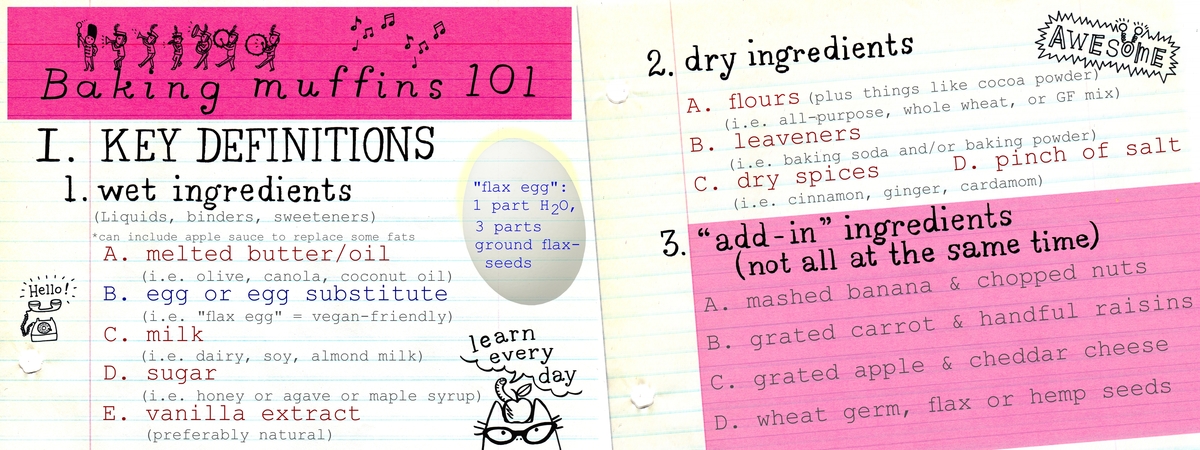 Baking muffins 101
I. KEY DEFINITIONS
1. wet ingredients
(Liquids, binders, sweeteners)
*can include apple sauce to replace some fats
A. melted butter/oil
(i.e. olive, canola, coconut oil)
B. egg or egg substitute
(i.e. "flax egg" = vegan-friendly)
C. milk
(i.e. dairy, soy, almond milk)
D. sugar
(i.e. honey or agave or maple syrup)
E. vanilla extract
(preferably natural)
Hello!
"flax egg":
1 part H2O,
3 parts
ground flax-
seeds
learn
every
day
2. dry ingredients
AWESOME
A. flours (plus things like cocoa powder)
(i.e. all-purpose, whole wheat, or GF mix)
B. leaveners
(i.e. baking soda and/or baking powder)
C. dry spices D. pinch of salt
(i.e. cinnamon, ginger, cardamom)
3. “add-in” ingredients
(not all at the same time)
A. mashed banana & chopped nuts
B. grated carrot & handful raisins
C. grated apple & cheddar cheese
D. wheat germ, flax or hemp seeds